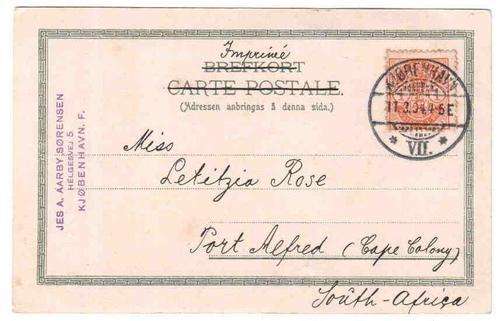 Imprimé
BREFKORT
CARTE POSTALE.
(Adressen anbringas å denna sida.)
KJØBENHAVN
11.2.04.4-5E
VII.
JES A. AARBY-SØRENSEN
HELGESVEJ 5
KJØBENHAVN. F.
Miss
Letitzia Rose
Port Alfred (Cape Colony)
South-Africa